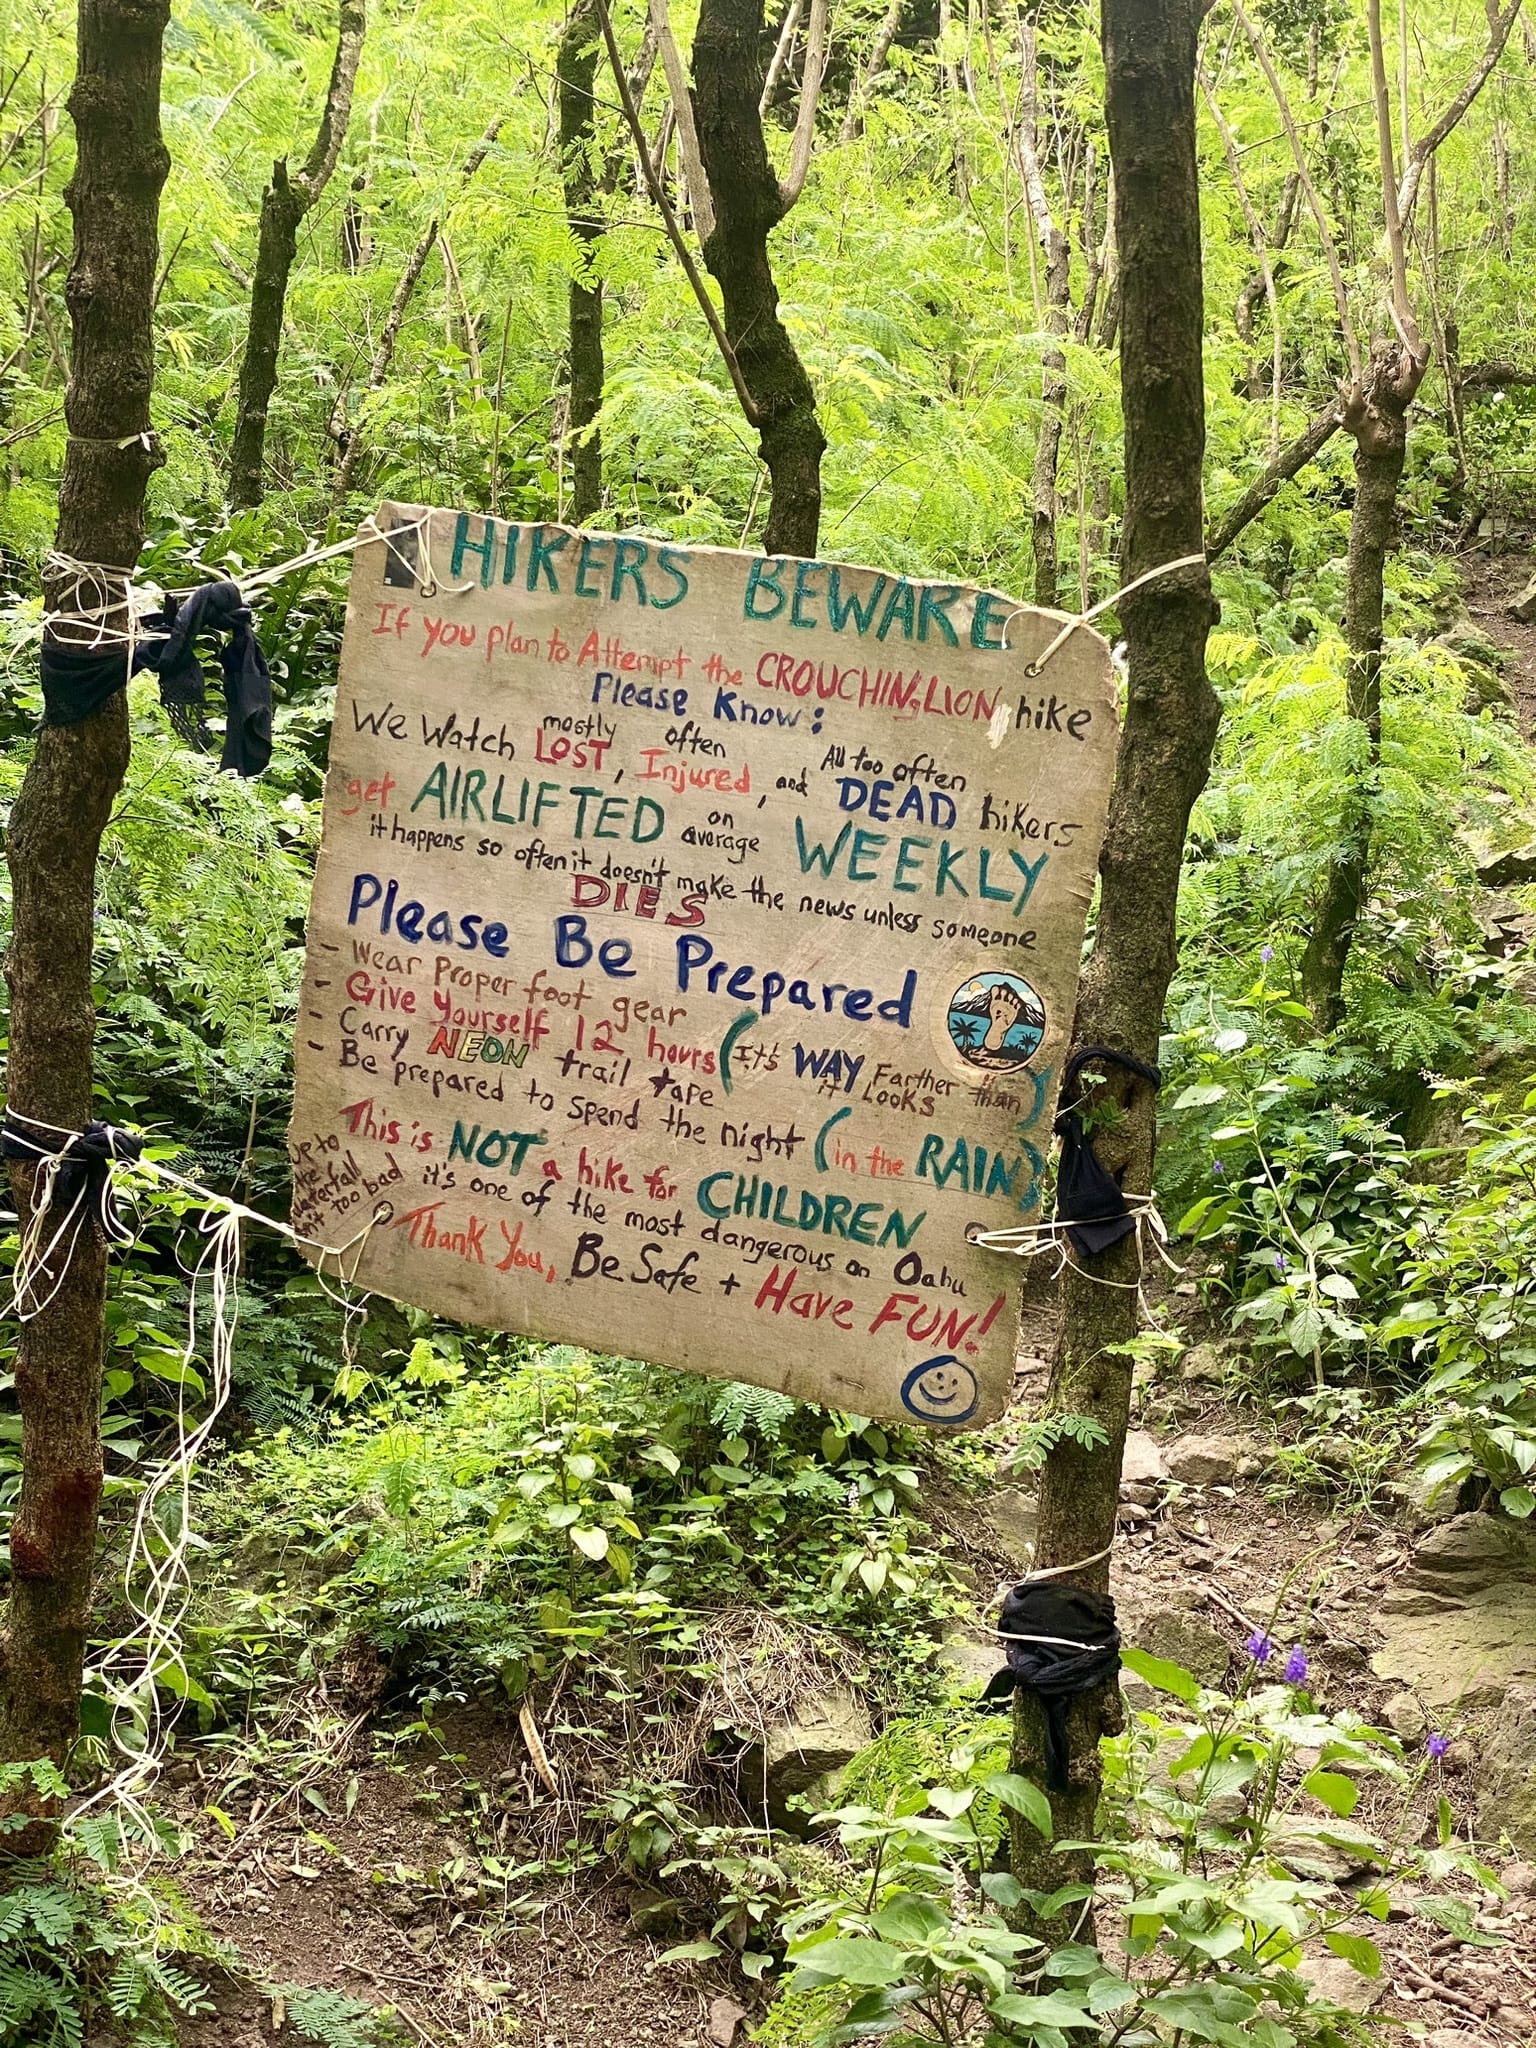 HIKERS BEWARE
If you plan to Attempt the CROUCHING LION hike
Please Know:
We Watch mostly LOST, often Injured, and All too often DEAD hikers
get AIRLIFTED on average WEEKLY
it happens so often it doesn't make the news unless someone
DIES
Please Be Prepared
- Wear Proper foot gear
- Give Yourself 12 hours (It's WAY Farther than it Looks)
- Carry NEON trail tape
- Be prepared to spend the night (in the RAIN)
This is NOT a hike for CHILDREN
it's one of the most dangerous on Oahu
Up to
the
Waterfall
isn't too bad
Thank You, Be Safe + Have FUN!